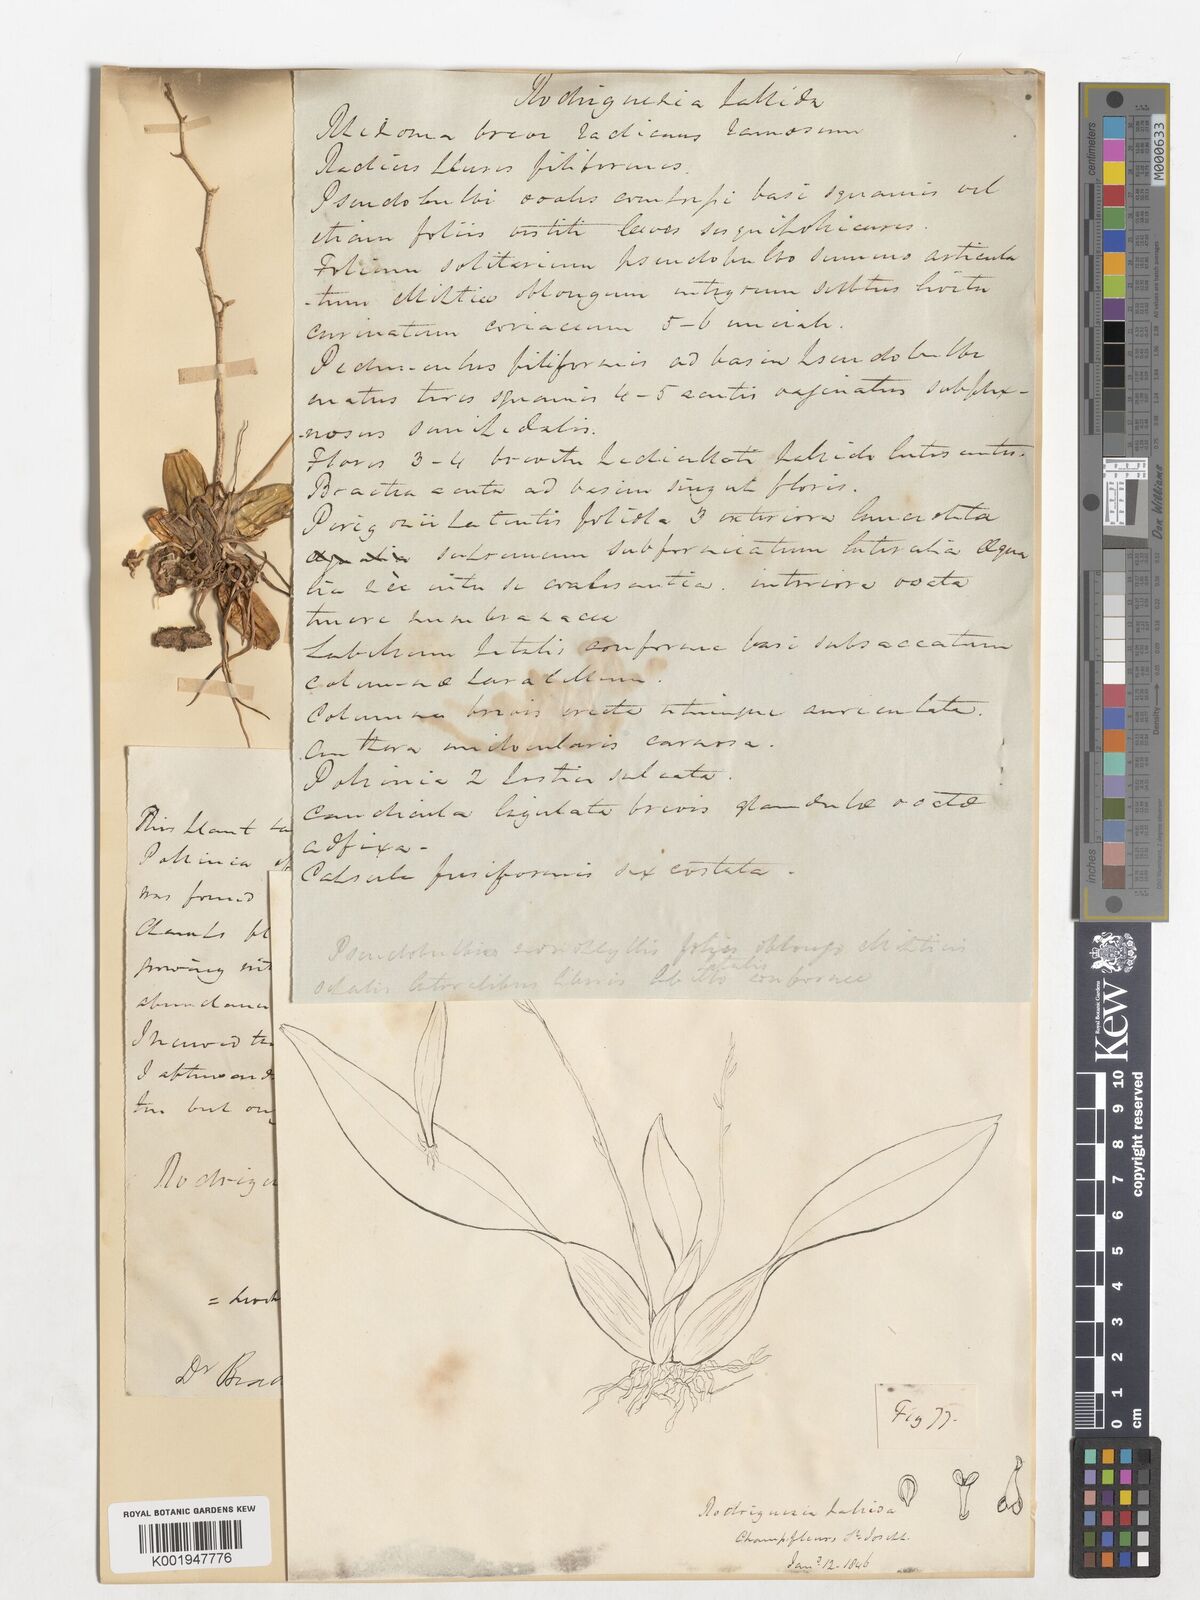 Rodriguezia pallida
Rhizoma breve radicans ramosum
Radices plures filiformes.
Pseudobulbi ovales compressi basi squamis vel
etiam foliis vestiti laeves sesquipollicares.
Folium solitarium pseudobulbo summo articula
-tum ellipticum oblongum integrum subtus
carinatum coriaceum 5-6 unciale.
Pedunculus filiformis ad basin pseudobulbi
enatus teres squamis 4-5 acutis vaginatus subflex-
nosus semipedalis.
Flores 3-4 breviter pedicellati pallide lutescentes.
Bractea acuta ad basim singuli floris.
Perigonii patentis foliola 3 exteriora lanceolata
supremum subfornicatum lateralia aequa
lia coalescentia. interiora ovata
tenere membranacea
Labellum petalis conforme basi subsaccatum
columnae parallelum.
Columna brevis erecta utrinque auriculata.
Anthera unilocularis carnosa.
Pollinia 2 postice sulcata.
Caudicula ligulata brevis glandulae ovatae
adfixa-
Capsula fusiformis sex costata.
Pseudobulbis monophyllis foliis oblongo ellipticis
petalis
sepalis lateralibus liberis labello conforme
This plant
Pollinia
was found
Champs fl
growing
abundance
I
I
but
Rodrigu
=
Dr Brad
Fig 77.
Rodriguezia pallida
Champfleurs St Joseph.
Jany 12-1846
ROYAL BOTANIC GARDENS KEW
K001947776
centimetres
inches
Density
Don Williams
M000633
Royal Botanic Gardens
Kew
copyright reserved
0 1 2 3 4 5 6 7 8 9 10
cm